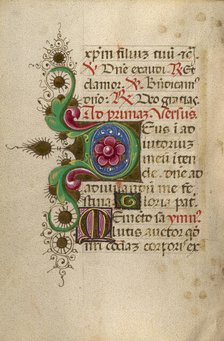 xp̄m filiuz tuū ⁊c̄
V Dn̄e exaudi. R Et
clamor. V Bn̄dicam⁹
dn̄o: R Deo gracias.
Ad primaz Versus.
Deus i ad
iutoriuz
meū i ten
de. dn̄e ad
adiuuanduz me fe
stina Gloria pat.
Memeto sa ymn⁹
lutis auctor qd̄
nr̄i